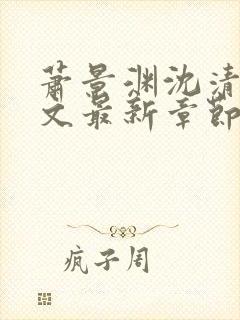 萧景渊沈清
文最新章節
疯子周